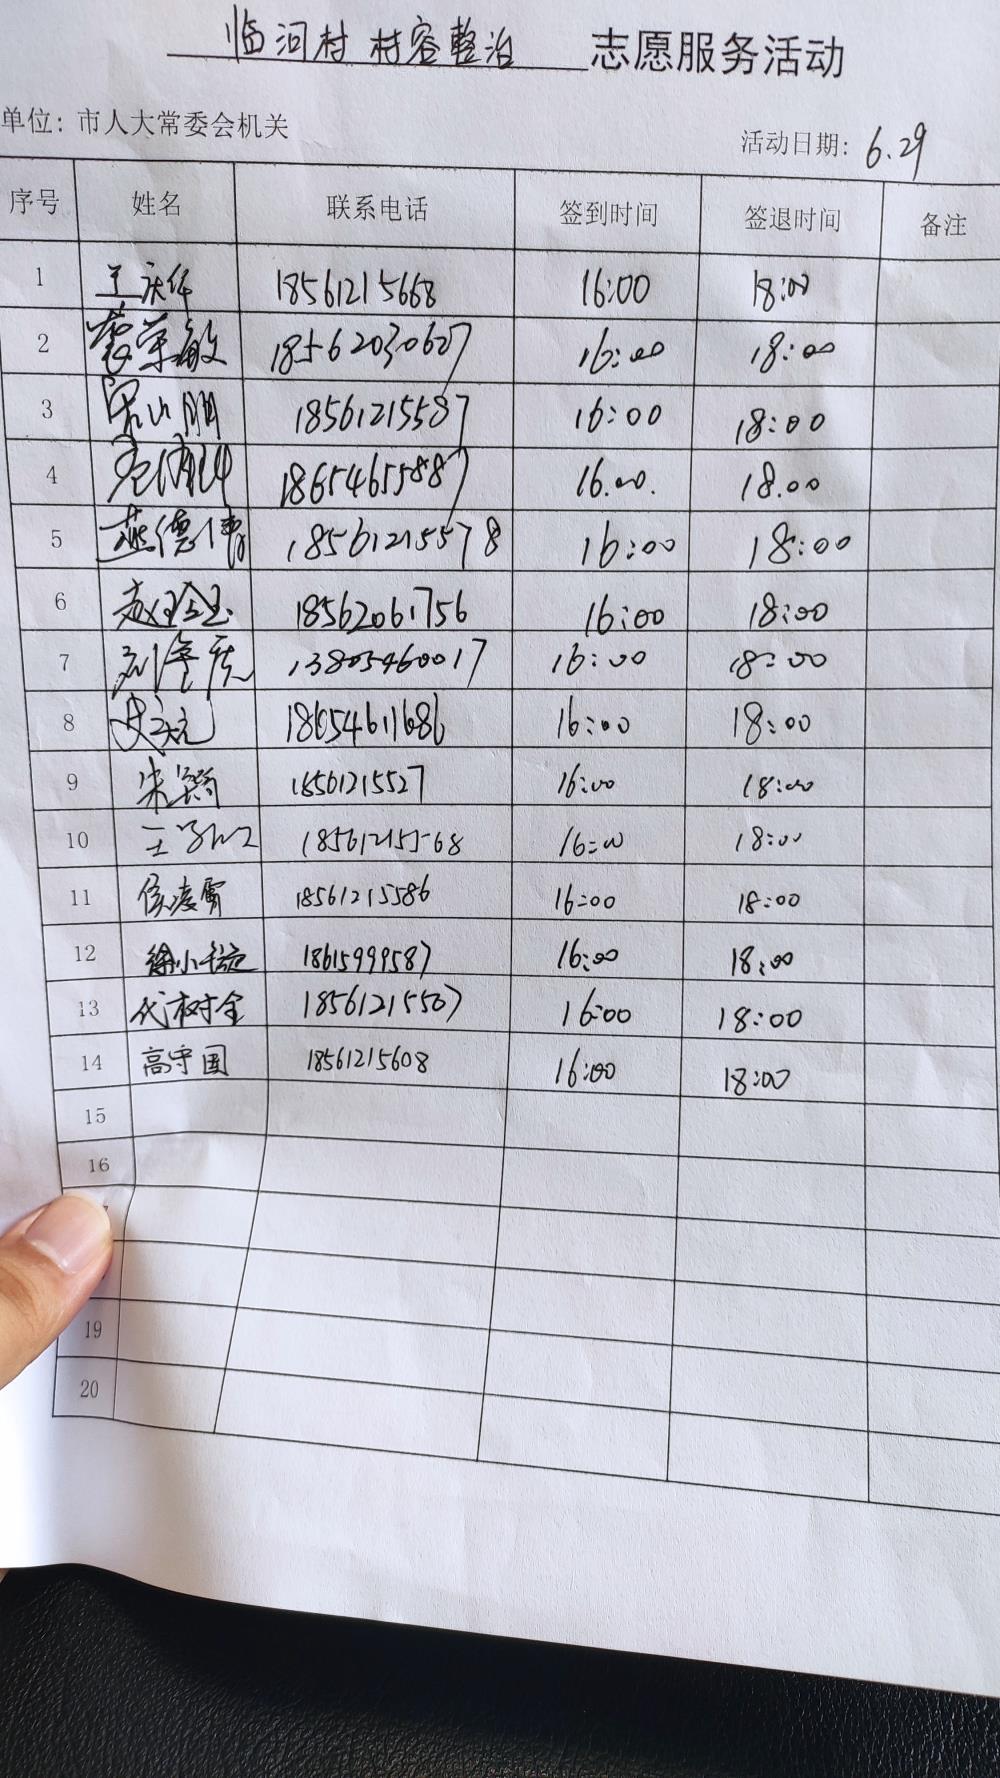 临河村 村容整治 志愿服务活动
单位：市人大常委会机关 活动日期：6.29
序号 姓名 联系电话 签到时间 签退时间 备注
1 王庆华 18561215668 16:00 18:00
2 18562030627 16:00 18:00
3 18561215587 16:00 18:00
4 18654655887 16.00. 18.00
5 燕德伟 18561215578 16:00 18:00
6 18562061756 16:00 18:00
7 13805460017 16:00 18:00
8 18054611686 16:00 18:00
9 朱 18561215527 16:00 18:00
10 王 18561215568 16:00 18:00
11 侯凌霄 18561215586 16:00 18:00
12 徐小 18615999587 16:00 18:00
13 代树全 18561215567 16:00 18:00
14 高守国 18561215608 16:00 18:00
15
16
19
20